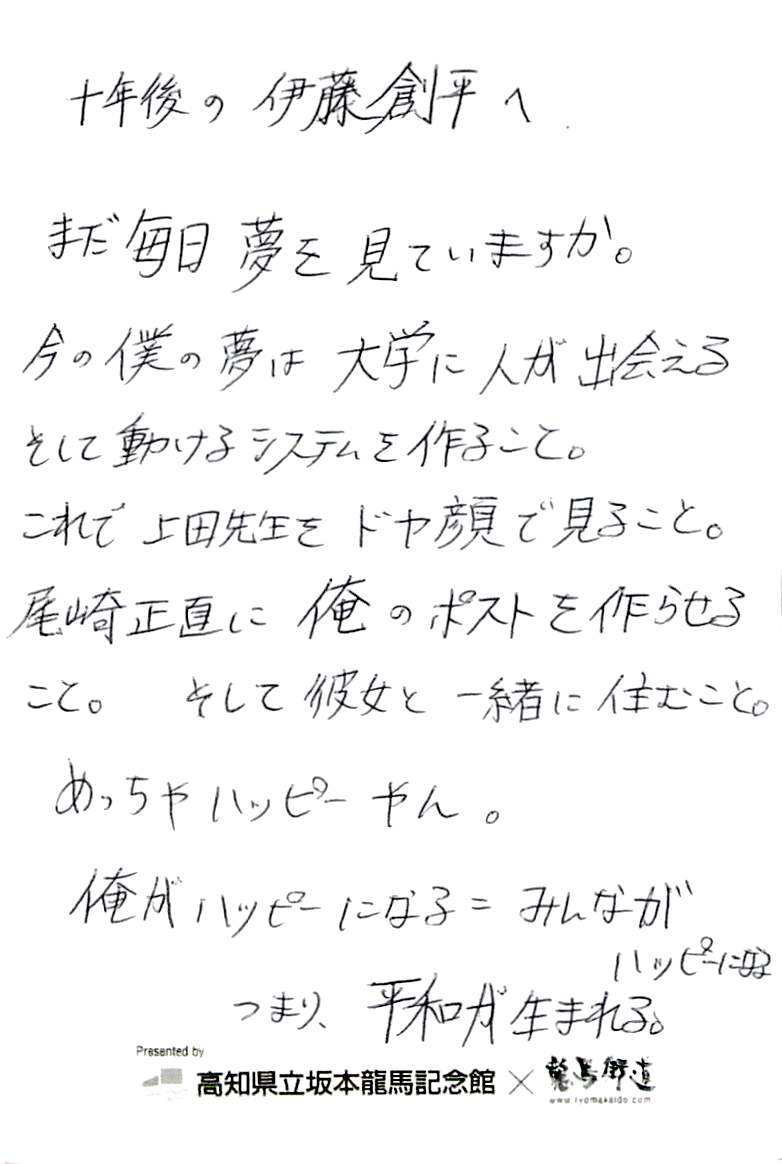 十年後の 伊藤創平へ
まだ毎日 夢を 見ていますか。
今の僕の夢は 大学に人が出会える
そして動けるシステムを作ること。
これで上田先生をドヤ顔で見ること。
尾崎正直に 俺のポストを作らせる
こと。 そして彼女と一緒に住むこと。
めっちゃハッピーやん。
俺がハッピーになる=みんなが
ハッピーになる
つまり、平和が生まれる。
Presented by
高知県立坂本龍馬記念館×龍馬街道
www.ryomakaido.com